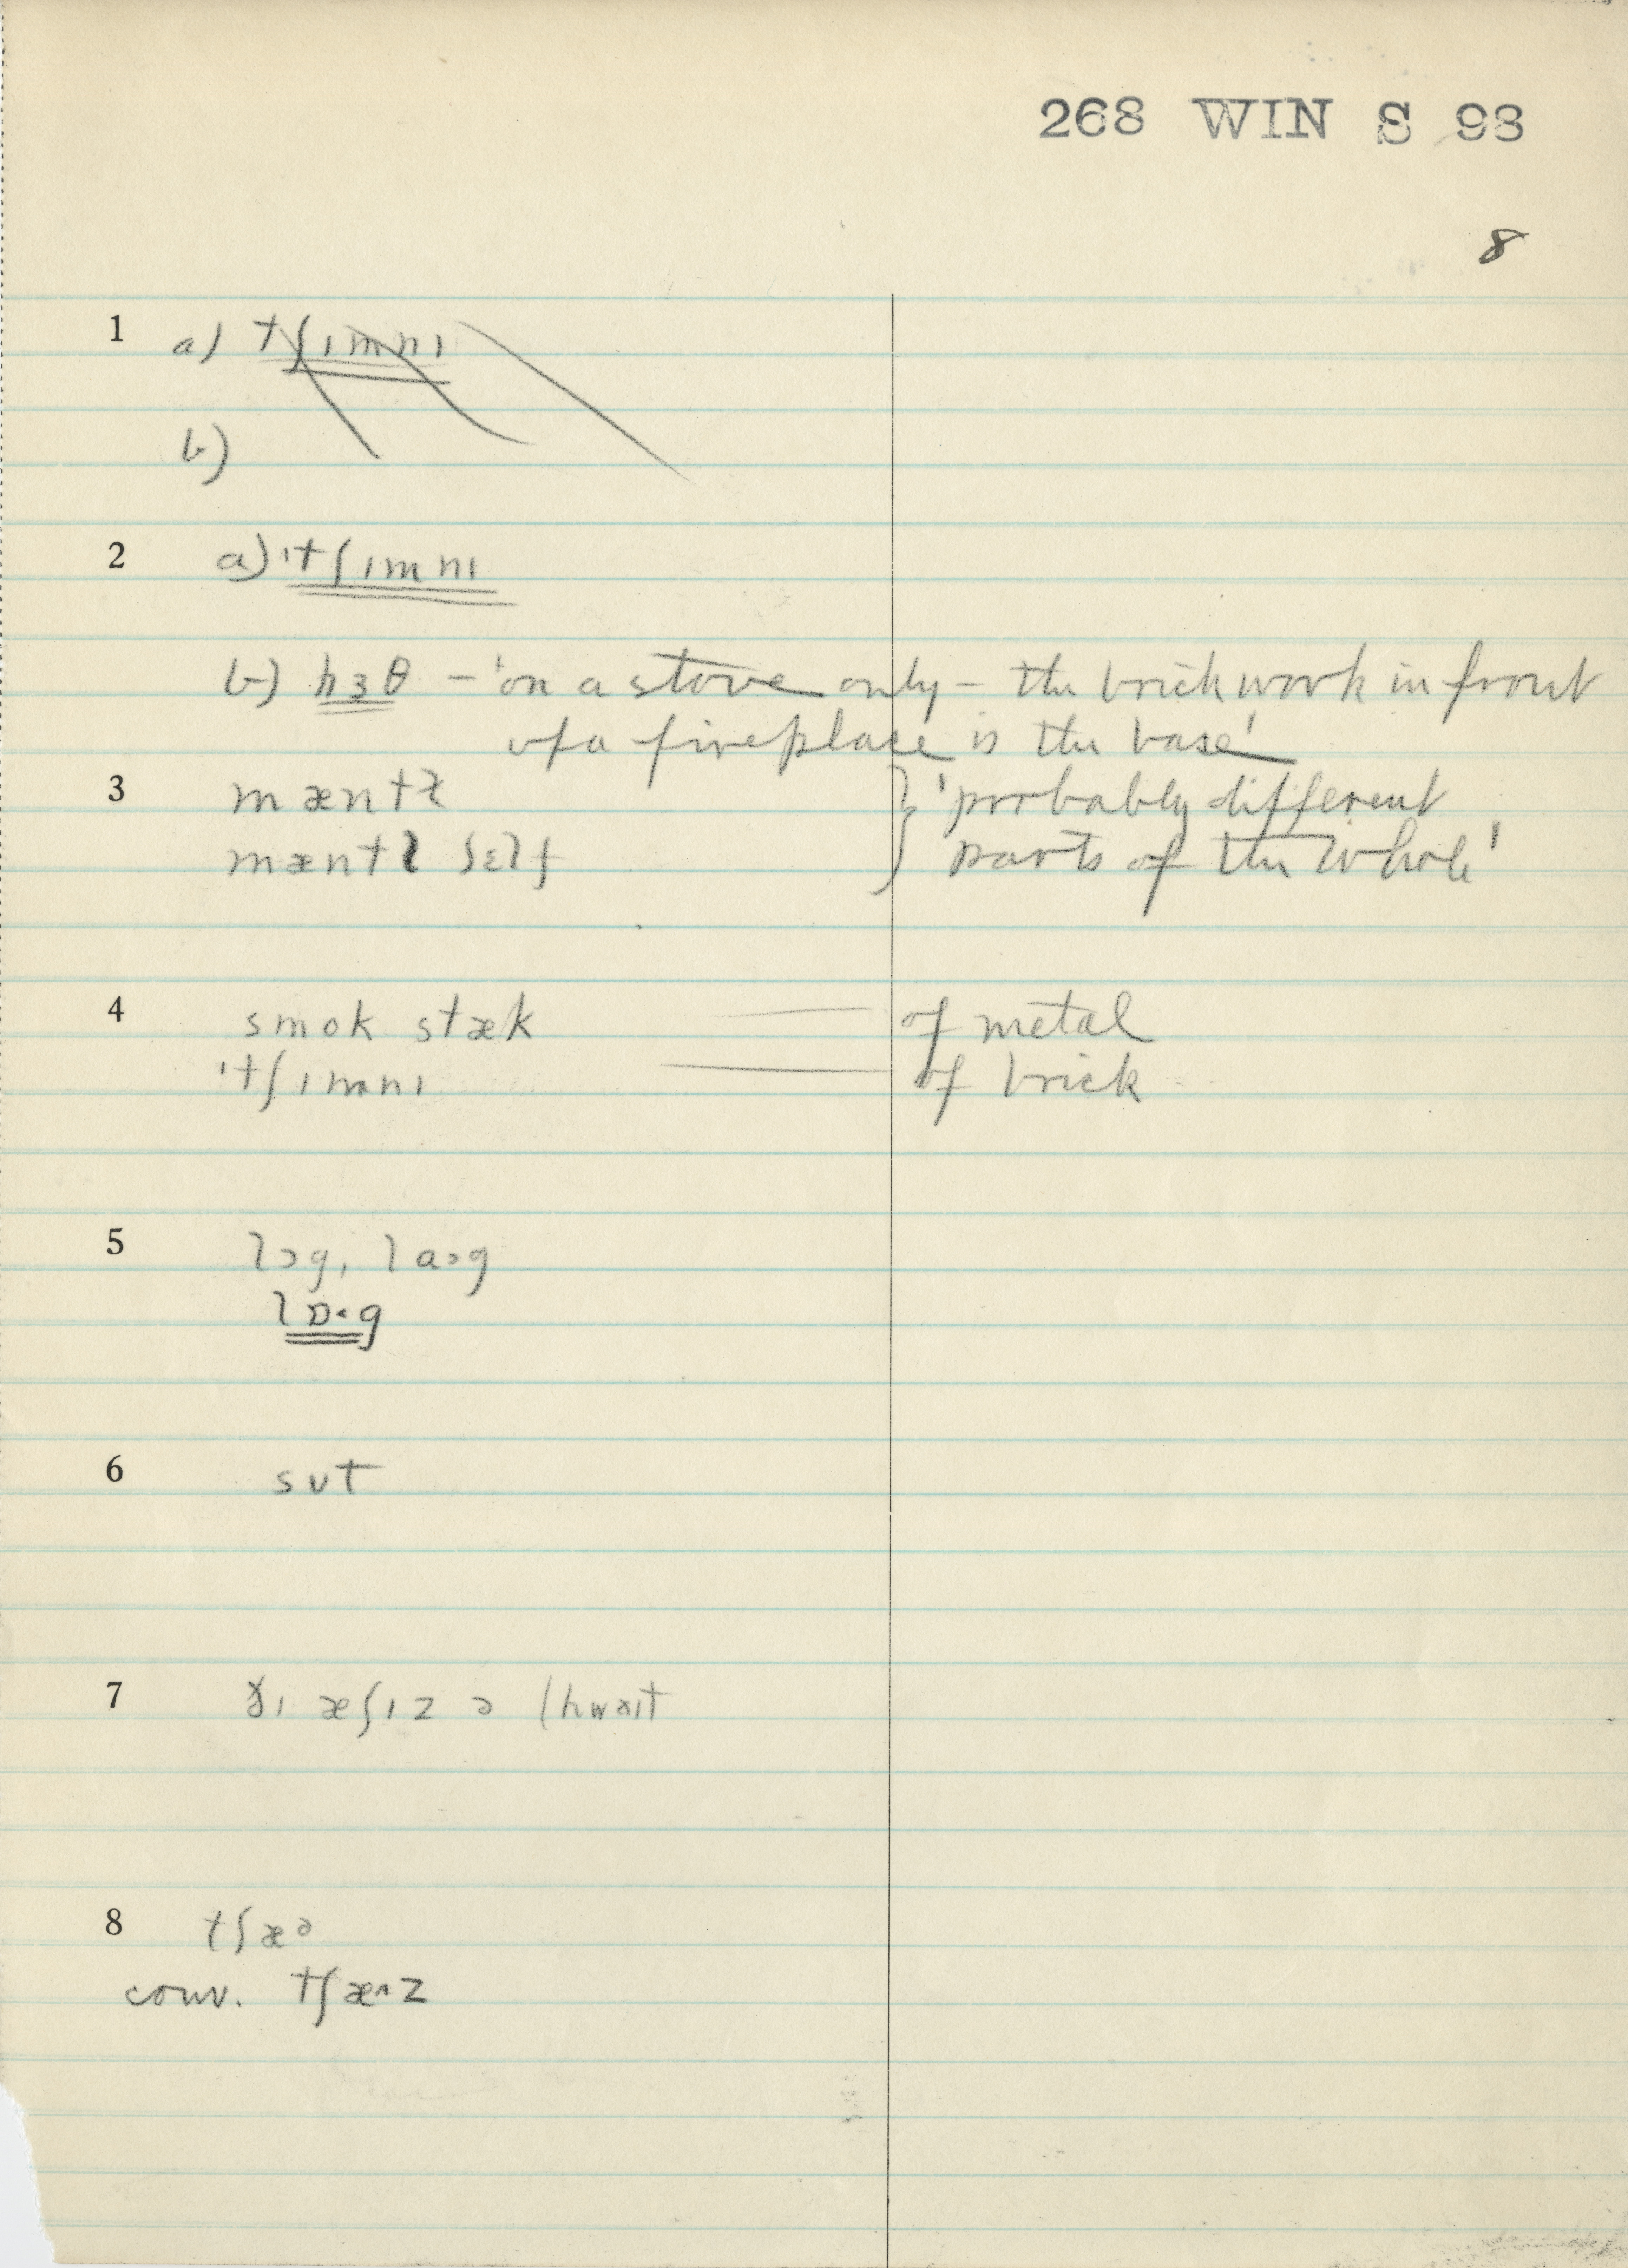 268 WIN S 98
8
1 a) tʃɪmnɪ
b)
2 a) 'tʃɪmnɪ
b) hɜθ – 'on a stove only – the brickwork in front
of a fireplace is the base'
3 mæntɫ } 'probably different
mæntl ʃɛlf } parts of the whole'
4 smok stæk — of metal
'tʃɪmnɪ — of brick
5 lɔg, laɔg
lɒ·g
6 sʊt
7 ðɪ æʃɪz ə hwaɪt
8 tʃæə
conv. tʃæ^z